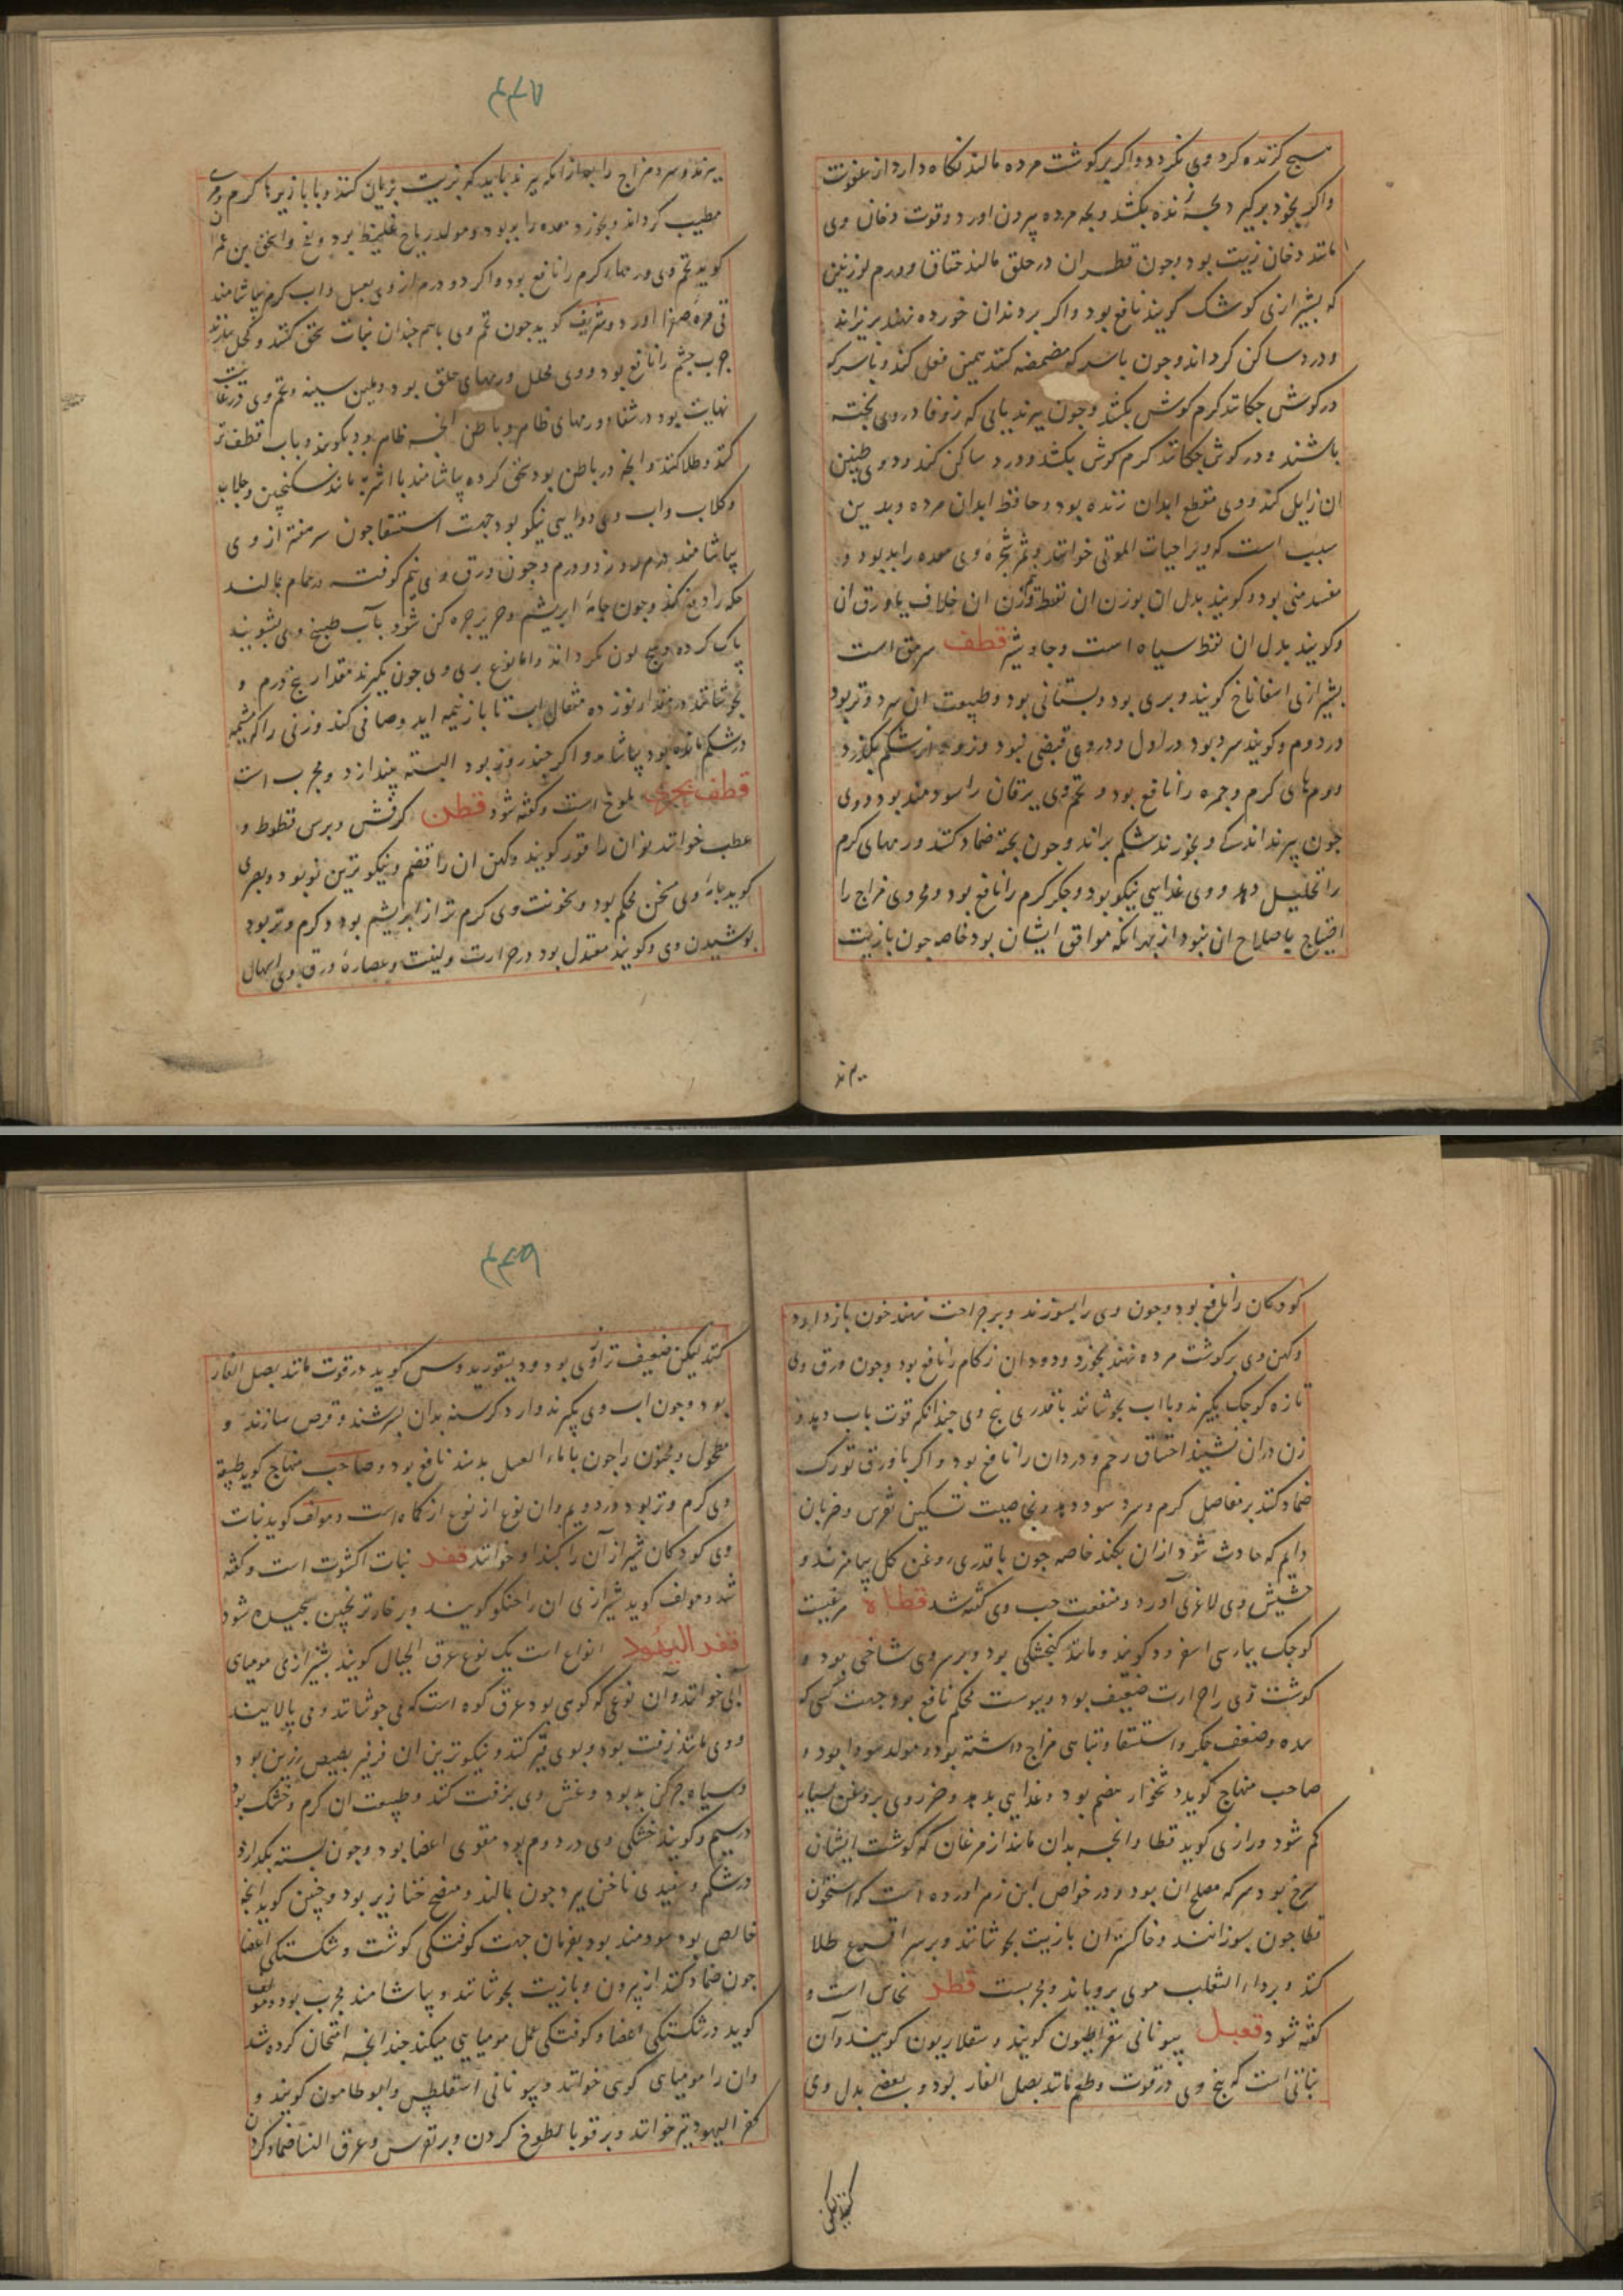 هیچ گزنده گرد وی نگردد واگر بر گوشت مرده مالند نگاه دارد از عفونت
واگر بخود برگیرد بچهٔ زنده بکشد وبچه مرده بیرون اورد وقوت دخان وی
مانند دخان زیت بود وجون قطران در حلق مالند خناق وورم لوزتین
که بشیرازی کوشک گویند نافع بود واگر بر دندان خورده نهند بریزاند
ودرد ساکن گرداند وجون با سرکه مضمضه کنند همین فعل کند وبا سرکه
در گوش چکانند کرم گوش بکشد وجون بپزند بابی که زوفا در وی پخته
باشند ودر گوش چکانند کرم گوش بکشد ودرد ساکن کند ودوی وطنین
ان زایل کند ووی مقطع ابدان زنده بود وحافظ ابدان مرده وبدین
سبب است که ویرا حیات الموتی خوانند وثمر شجره وی معده را بد بود و
مفسد منی بود وگویند بدل ان بوزن ان نفط ووزن ان خلاف یا ورق ان
وگویند بدل ان نفط سیاه است وجاوشیر قطف سرمق است
بشیرازی اسفاناخ گویند وبری بود وبستانی بود وطبیعت ان سرد وتر بود
در دوم وگویند سرد بود در اول ودر وی قبضی نبود وزود از شکم بگذرد
وورم های گرم وجمره را نافع بود وتخم وی یرقان را سودمند بود ووی
جون بپزند اندکی وبخورند شکم براند وجون پخته ضماد کنند ورمهای گرم
را تحلیل دهد ووی غذایی نیکو بود وجگر گرم را نافع بود ومحروری مزاج را
احتیاج باصلاح ان نبود از بهر انکه موافق ایشان بود خاصه جون با زیت
بپزند
٣٣٨
بپزند وسرد مزاج را بعد از انکه بپزند باید که بزیت بریان کنند وبا بازیرها گرم ومری
مطیب گرداند وبخورد معده را بد بود ومولد ریاح غلیظ بود ونفخ واسحق بن عمران
گوید تخم وی ورمهاء گرم را نافع بود واگر دو درم از وی بعسل واب گرم بیاشامند
قی مرهٔ صفرا اورد وشریف گوید جون تخم وی باهم چندان نبات سحق کنند وکحل سازند
جرب چشم را نافع بود ووی محلل ورمهای حلق بود وملین سینه وتخم وی در غایت
نهایت بود در شفاء ورمهای ظاهر وباطن انچه ظاهر بود بکوبند وباب قطف تر
کنند وطلا کنند وانچه در باطن بود سحق کرده بیاشامند با اشربه مانند سکنجبین وجلاب
وگلاب واب وی دوایی نیکو بود جهت استسقا جون سر هفته از وی
بیاشامند هر روز دو درم وجون ورق وی نیم کوفته در حمام بمالند
حکه را دفع کند وجون جامهٔ ابریشم وحریر چرکن شود بآب طبیخ وی بشویند
پاک کرده وهیچ لون نگرداند واما نوع بری وی جون بگیرند مقدار پنج درم و
بجوشانند در مقدار نود ده مثقال اب تا باز نیمه اید وصافی کند وزنی را که مشیمه
در شکم مانده بود بیاشامد واگر چند روز بود البته بیندازد ومجرب است
قطف بحری ملوخ است وگفته شود قطن کرفش وبرس قطوط و
عطب خوانند ونوان را قور گویند وکهن ان را قضم ونیکوترین نو بود وبصری
گوید جامهٔ وی سخن محکم بود وسخونت وی گرم تر از ابریشم بود وگرم وتر بود
پوشیدن وی وگویند معتدل بود در حرارت ولینت وعصارهٔ ورق وی اسهال
کودکان را نافع بود وجون وی را بسوزند وبر جراحت نهند خون باز دارد
وکهن وی بر گوشت مرده نهند بخورد ودود ان زکام را نافع بود وجون ورق وی
تازه کوچک بگیرند وبا اب بجوشانند با قدری بیخ وی چندانکه قوت باب دهد و
زن در ان نشیند اختناق رحم ودردان را نافع بود واگر با ورق تورک
ضماد کنند بر مفاصل گرم وسرد سود دهد وبخاصیت تسکین نقرس وضربان
دایم که حادث شود از ان بکند خاصه جون با قدری روغن گل بیامیزند و
حشیش وی لاغری آورد ومنفعت حب وی گفته شد قطاة مرغیست
کوچک بپارسی اسفرود گویند ومانند گنجشکی بود وبر سر وی شاخی بود و
گوشت وی را حرارت ضعیف بود ویبوست محکم نافع بود جهت کسی که
سده وضعف جگر واستسقا وتباهی مزاج داشته بود ومولد سودا بود و
صاحب منهاج گوید دشخوار هضم بود وغذایی بد دهد وضرر وی بروغن بسیار
کم شود ورازی گوید قطا وانچه بدان ماند از مرغان که گوشت ایشان
سرخ بود سرکه مصلح ان بود ودر خواص ابن زهر اورده است که استخوان
قطا جون بسوزانند وخاکستر ان با زیت بجوشانند وبر سر اقرع طلا
کنند وبر داء الثعلب موی برویاند ومجربست قطر نحاس است و
گفته شود قعبل بیونانی سقراطیون گویند وسقلاریون گویند وآن
نباتی است که بیخ وی در قوت وطعم مانند بصل الفار بود وبعضی بدل وی
کنند لیکن
٣٣٩
کنند لیکن ضعیف تر از وی بود ودیسقوریدوس گوید در قوت مانند بصل الفار
بود وجون اب وی بگیرند وارد کرسنه بدان بسرشند وقرص سازند و
مطحول ومجنون را جون با ماء العسل بدهند نافع بود وصاحب منهاج گوید طبیعت
وی گرم وتر بود در دویم وان نوع از نوع از کماه است ومولف گوید نبات
وی کودکان شیراز آن را کبنداو خوانند قفد نبات اکشوت است وگفته
شد ومولف گوید شیرازی ان را خنگو گویند وبر خار ترنجبین پیچیده شود
قفر الیهود انواع است یک نوع عرق الجبال گویند بشیرازی مومیای
آبی خوانند وآن نوعی که کوهی بود عرق کوه است که می جوشانند ومی پالایند
ووی مانند زفت بود وبوی قیر کند ونیکوترین ان فرفیر بصیص رزین بود و
وسیاه چرکن بد بود وغش وی بزفت کنند وطبیعت ان گرم وخشک بود
در سیم وگویند خشکی وی در دوم بود مقوی اعضا بود وجون بسته بگدازد
در شکم وسفیدی ناخن ببرد جون بمالند ومنضج خنازیر بود وچنین گوید انچه
خالص بود سودمند بود بفرمان جهت کوفتگی گوشت وشکستگی اعضا
جون ضماد کنند از بیرون وبا زیت بجوشانند وبیاشامند مجرب بود ومولف
گوید در شکستگی اعضا وکوفتگی عمل مومیایی میکند چندانچه امتحان کرده شد
وان را مومیای کوهی خوانند وبیونانی اسقلطس وابوطامون گویند و
کفر الیهود نیز خوانند وبر قوبا لطوخ کردن وبر نقرس وعرق النسا ضماد کردن